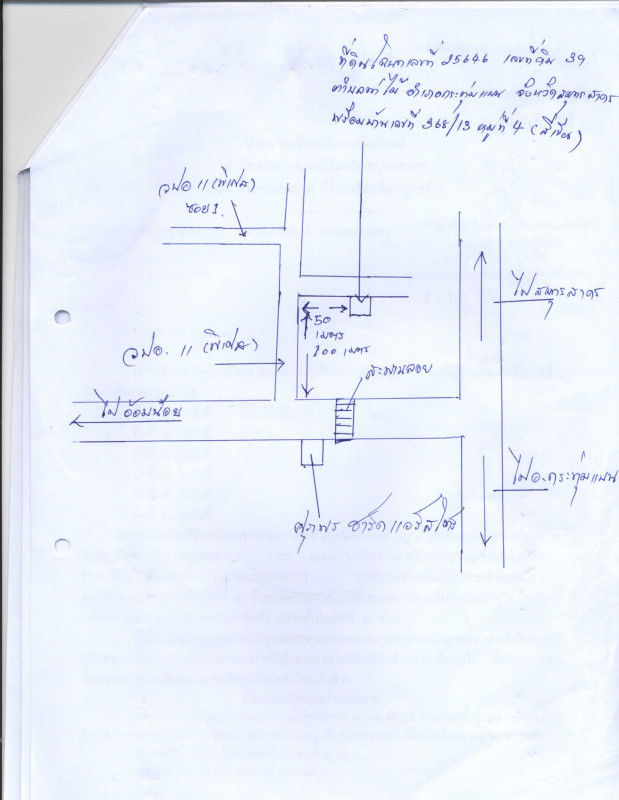 ที่ดินโฉนดเลขที่ 25646 เลขที่ดิน 39
ตำบลท่าไม้ อำเภอกระทุ่มแบน จังหวัดสมุทรสาคร
พร้อมบ้านเลขที่ 368/13 หมู่ที่ 4 (สี่เขียน)
วปอ 11 (พิเศษ)
ซอย 1.
ไปสมุทรสาคร
50
เมตร
100 เมตร
วปอ. 11 (พิเศษ)
สะพานลอย
ไปอ้อมน้อย
ไปอ.กระทุ่มแบน
ศุภพร ฮาร์ดแวร์สโตร์